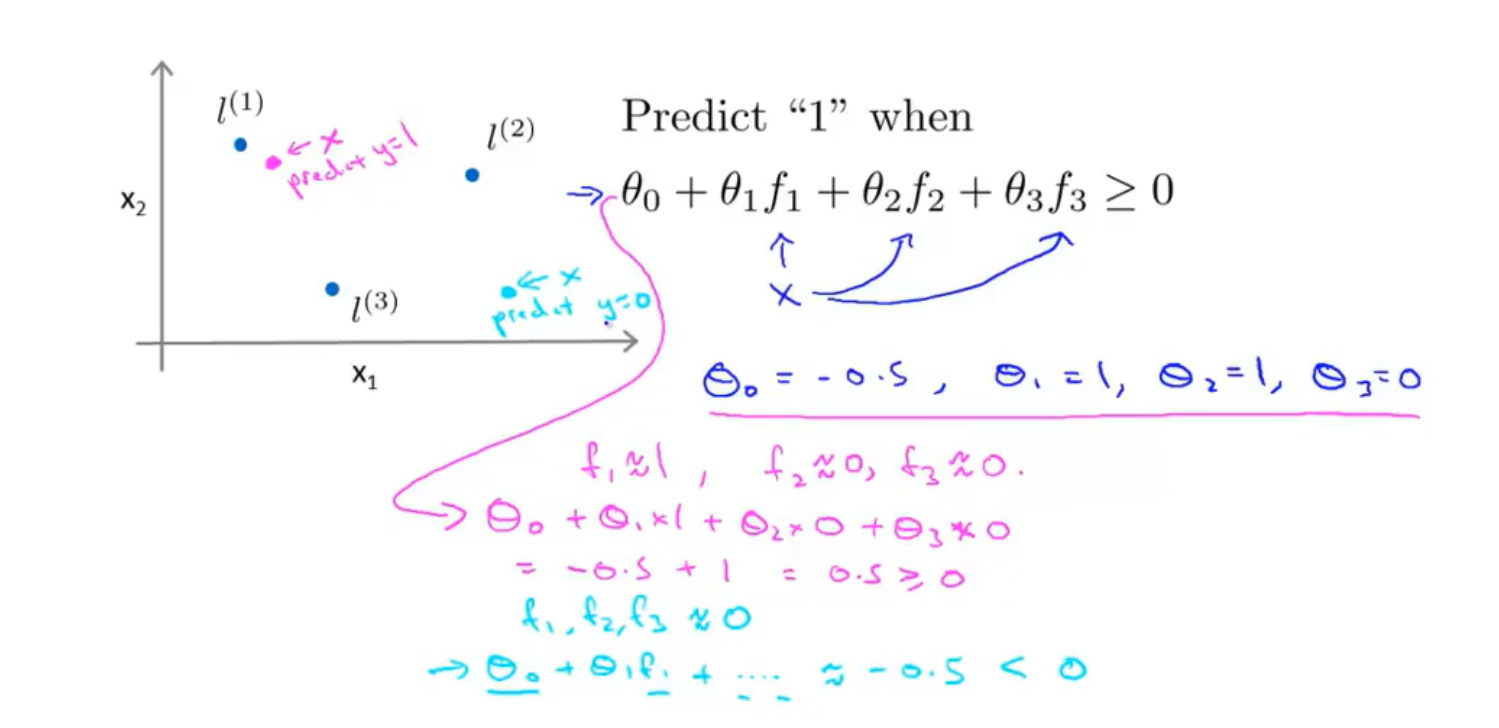 l^{(1)}
← x
predict y=1
l^{(2)}
x₂
l^{(3)}
← x
predict y=0
x₁
Predict “1” when
→ θ₀ + θ₁f₁ + θ₂f₂ + θ₃f₃ ≥ 0
↑
x
θ₀ = -0.5, θ₁ = 1, θ₂ = 1, θ₃ = 0
f₁ ≈ 1, f₂ ≈ 0, f₃ ≈ 0.
→ θ₀ + θ₁×1 + θ₂×0 + θ₃×0
= -0.5 + 1 = 0.5 ≥ 0
f₁, f₂, f₃ ≈ 0
→ θ₀ + θ₁f₁ + .... ≈ -0.5 < 0